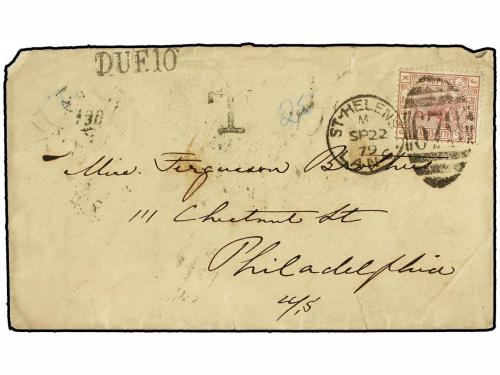 DUE 10
T
25
ST. HELENS
M
SP 22
79
671
Miss. Fergusson Brothe
111 Chestnut St
Philadelphia
U/S